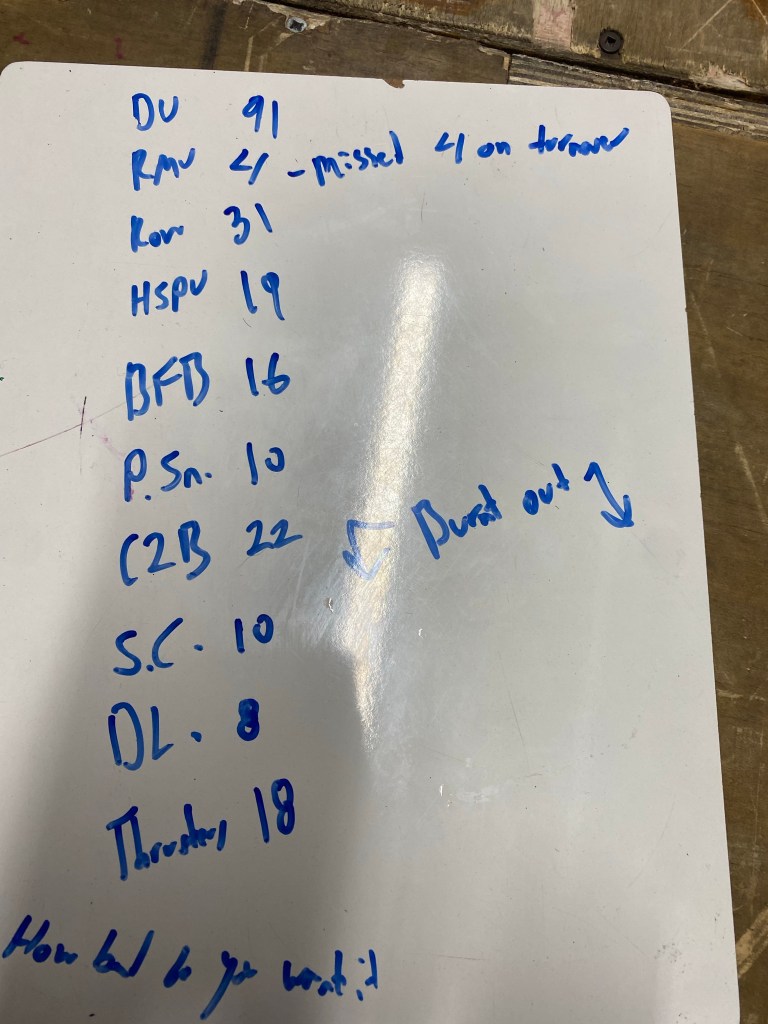 DU 91
RMU 4 - missed 4 on turnover
Row 31
HSPU 19
BFB 16
P.Sn. 10
C2B 22 Burnt out
S.C. 10
DL. 8
Thrusters 18
How bad do you want it